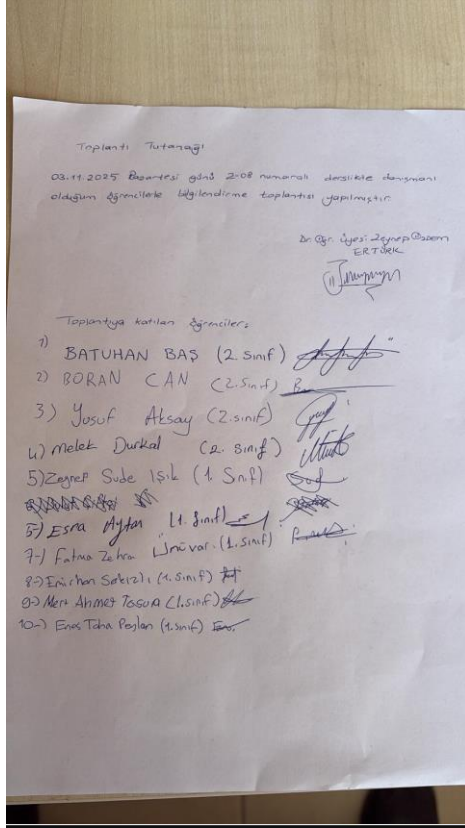 Toplantı Tutanağı
03.11.2025 Pazartesi günü Z-08 numaralı derslikte danışmanı
olduğum öğrencilerle bilgilendirme toplantısı yapılmıştır.
Dr. Öğr. Üyesi Zeynep
ERTÜRK
Toplantıya katılan öğrenciler:
1) BATUHAN BAŞ (2. Sınıf)
2) BORAN CAN (2. Sınıf)
3) Yusuf Aksay (2. sınıf)
4) Melek Durkal (2. Sınıf)
5) Zeynep Sude Işık (1. Sınıf)
6-) Esra Aytan (1. Sınıf)
7-) Fatma Zehra Ünüvar (1. Sınıf)
8-) Emirhan (1. Sınıf)
9-) Mert Ahmet TOSUN (1. sınıf)
10-) Enes Taha (1. sınıf)